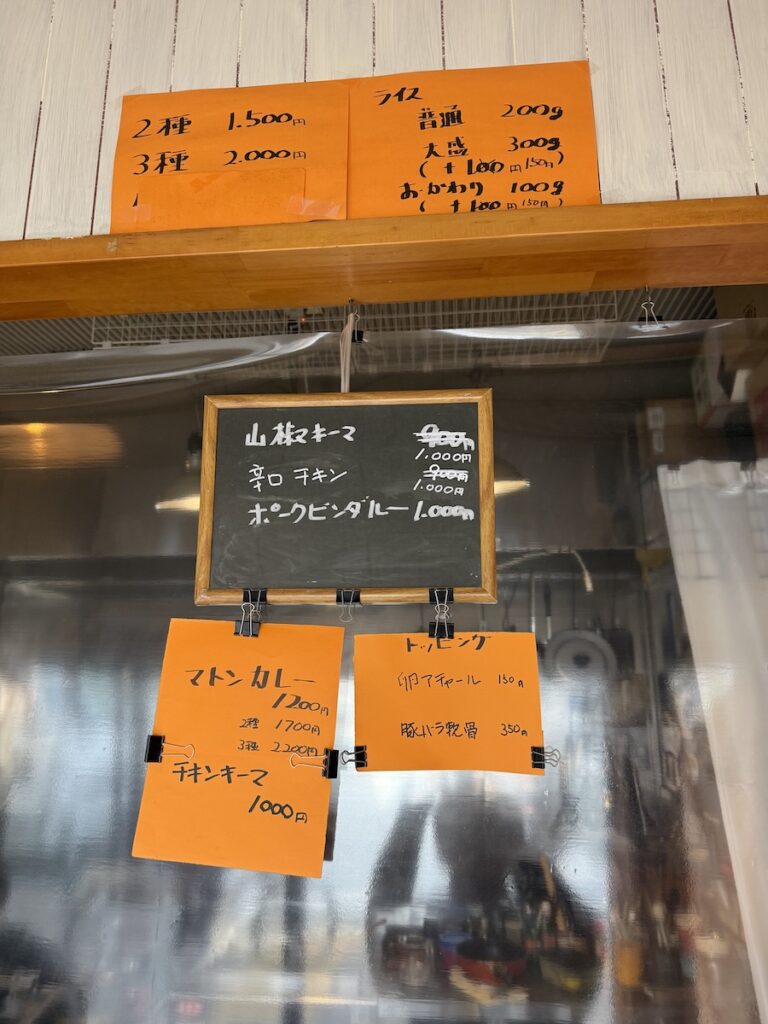 2種 1.500円
3種 2.000円
ライス
普通 200g
大盛 300g
(+100円 150円)
おかわり 100g
(+100円 150円)
山椒キーマ 900円
1.000円
辛口チキン 900円
1.000円
ポークビンダルー 1.000円
マトンカレー
1200円
2種 1700円
3種 2.200円
チキンキーマ
1000円
トッピング
卵アチャール 150円
豚バラ軟骨 350円